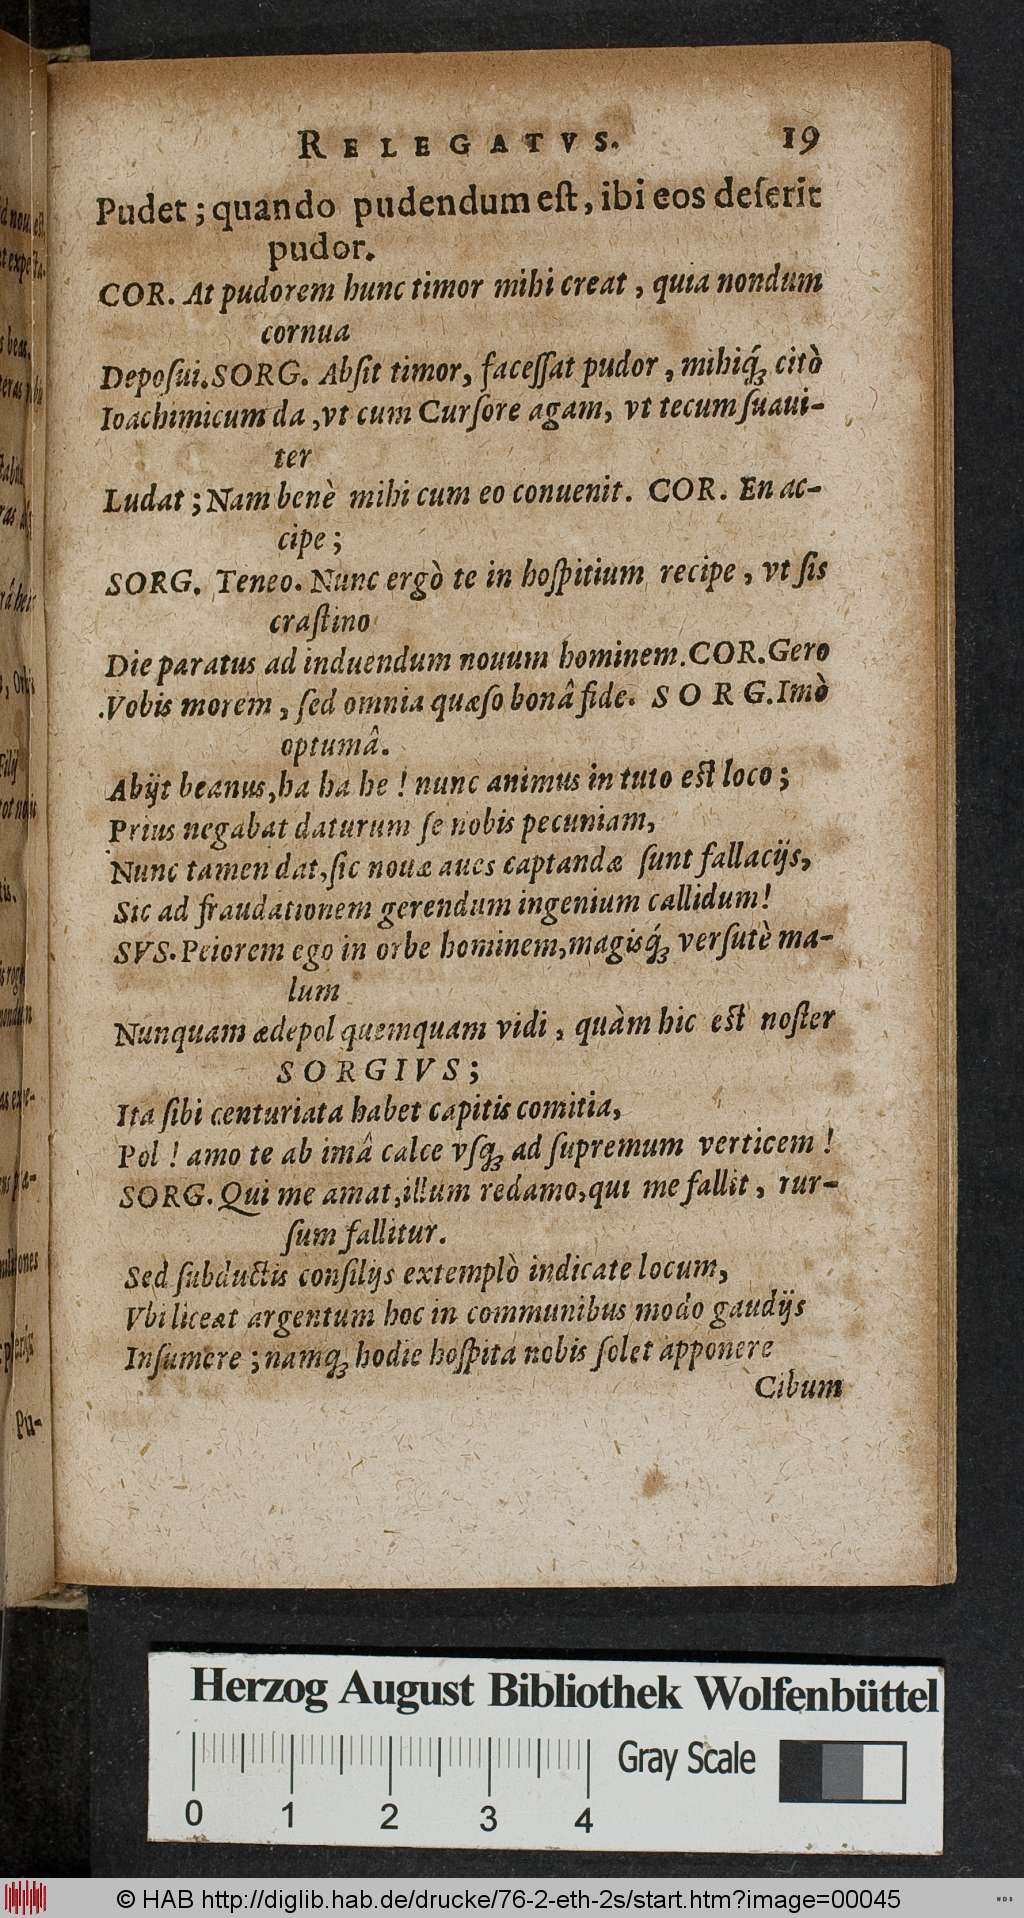 RELEGATVS. 19
Pudet; quando pudendum eſt, ibi eos deſerit
pudor.
COR. At pudorem hunc timor mihi creat, quia nondum
cornua
Depoſui. SORG. Abſit timor, faceſſat pudor, mihiq́ꝫ citò
Ioachimicum da, vt cum Curſore agam, vt tecum ſuaui-
ter
Ludat; Nam benè mihi cum eo conuenit. COR. En ac-
cipe;
SORG. Teneo. Nunc ergò te in hoſpitium recipe, vt ſis
craſtino
Die paratus ad induendum nouum hominem. COR. Gero
Vobis morem, ſed omnia quæſo bonâ fide. SORG. Imò
optumâ.
Abijt beanus, ha ha he! nunc animus in tuto eſt loco;
Prius negabat daturum ſe nobis pecuniam,
Nunc tamen dat, ſic nouæ aues captandæ ſunt fallacijs,
Sic ad fraudationem gerendum ingenium callidum!
SVS. Peiorem ego in orbe hominem, magisq́ꝫ verſutè ma-
lum
Nunquam ædepol quemquam vidi, quàm hic eſt noſter
SORGIVS;
Ita ſibi centuriata habet capitis comitia,
Pol! amo te ab imâ calce vſqꝫ ad ſupremum verticem!
SORG. Qui me amat, illum redamo, qui me fallit, rur-
ſum fallitur.
Sed ſubductis conſilijs extemplò indicate locum,
Vbi liceat argentum hoc in communibus modo gaudijs
Inſumere; namqꝫ hodie hoſpita nobis ſolet apponere
Cibum
Pu-
Herzog August Bibliothek Wolfenbüttel
Gray Scale
0 1 2 3 4
© HAB http://diglib.hab.de/drucke/76-2-eth-2s/start.htm?image=00045